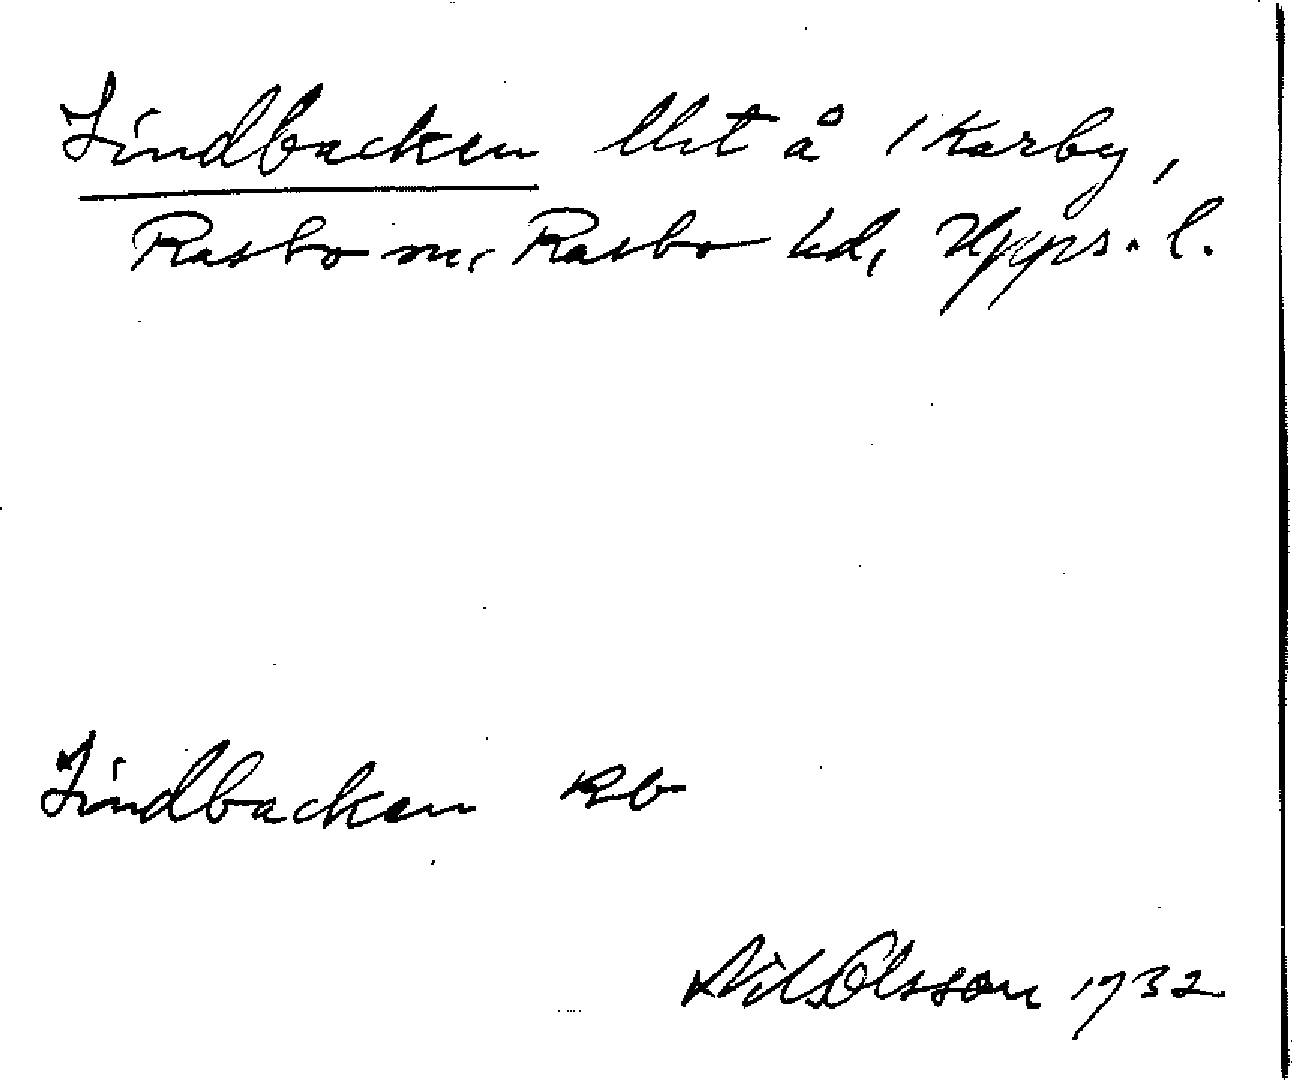 Lindbacken lht å 1 Karby,
Rasbo sn, Rasbo hd, Upps. l.
Lindbacken Rb
Nils Olsson 1932